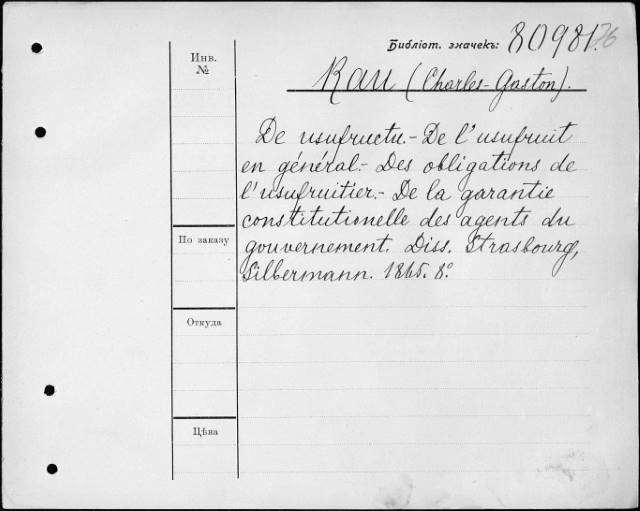 Библіот. значекъ: 80981.76
Инв.
№
Rau (Charles-Gaston).
De usufructu.- De l'usufruit
en général.- Des obligations de
l'usufruitier.- De la garantie
constitutionelle des agents du
gouvernement. Diss. Strasbourg,
Silbermann. 1865. 8º.
По заказу
Откуда
Цѣна